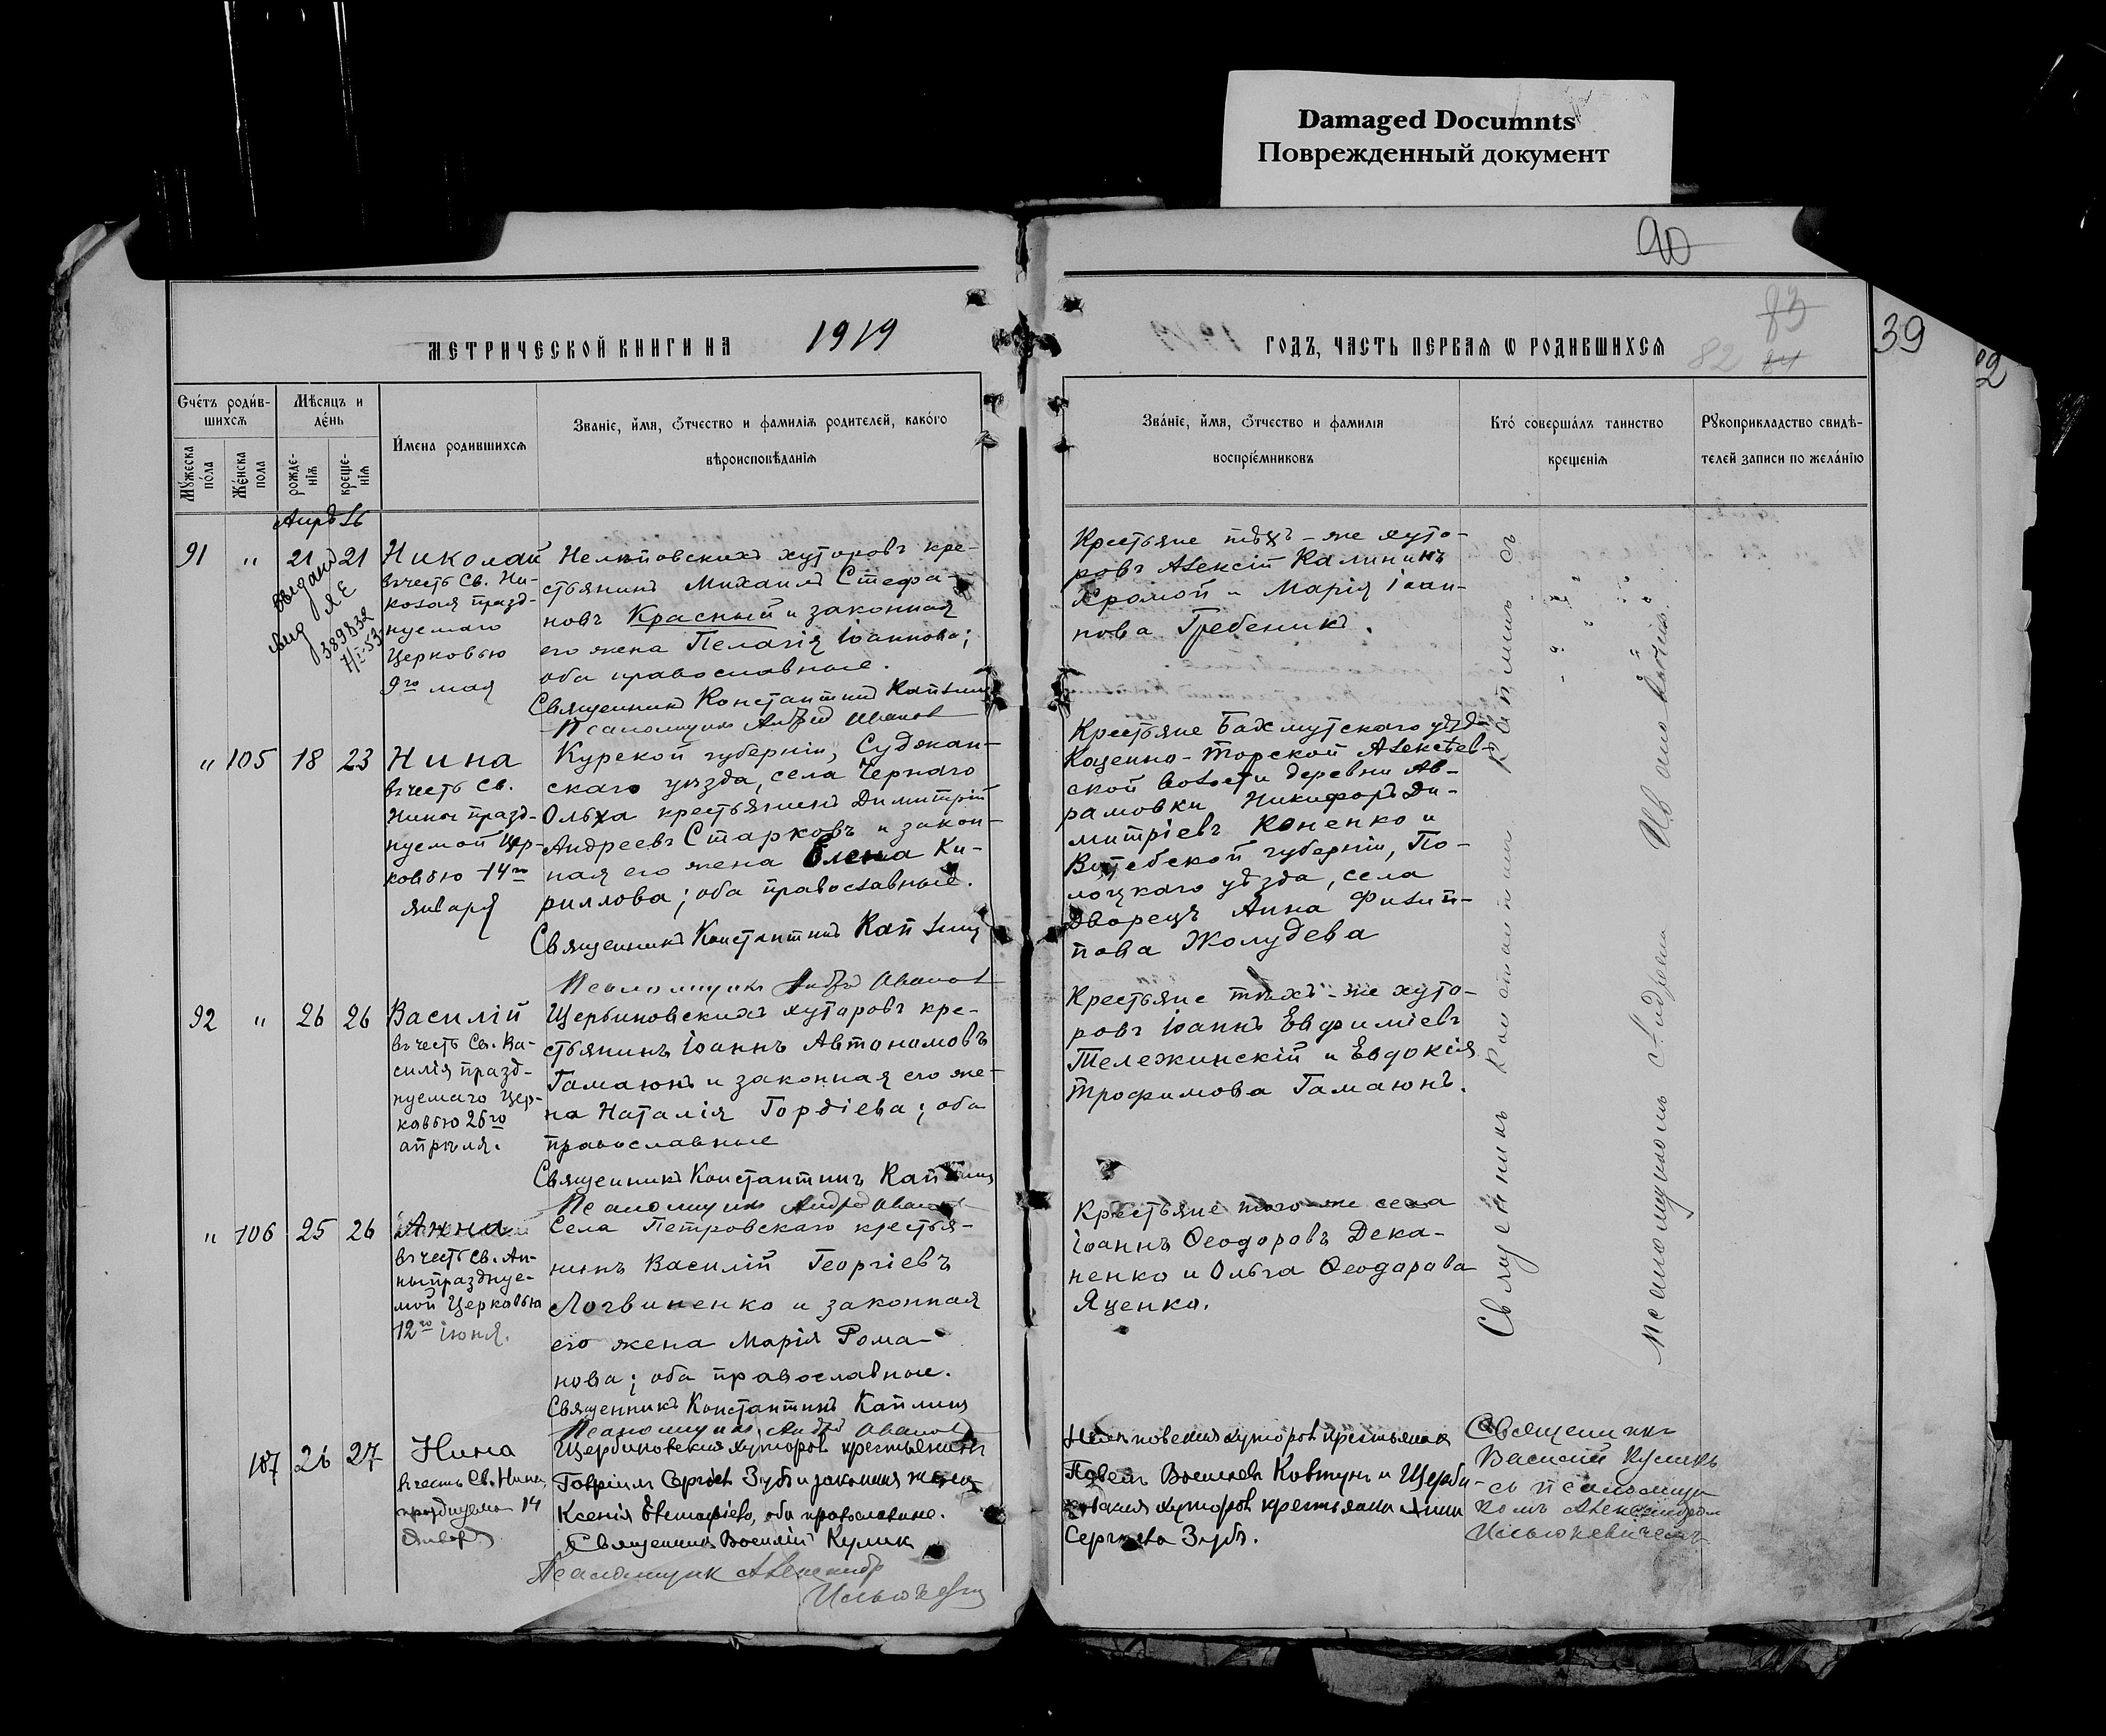 Damaged Documnts
Поврежденный документ
90
83
82 84
39
МЕТРИЧЕСКОЙ КНИГИ НА 1919 ГОДЪ, ЧАСТЬ ПЕРВАЯ Ѡ РОДИВШИХСЯ
Сче́тъ роди́в-
шихся
Му́жеска по́ла
Же́нска пола
Мѣсяцъ и
де́нь
рожде-
нія
креще-
нія
И́мена родившихся
Званіе, и́мя, ѻ́тчество и фамилія родителей, како́го
вѣроисповѣданія
Зва́ніе, и́мя, ѻ́тчество и фамилія
воспріе́мниковъ
Кто́ соверша́лъ таинство
крещенія
Рукоприкладство свидѣ-
телей записи по жела́нію
91 " 21 21
выдано
ЯЕ
389832
Николай
въ честь Св. Ни-
колая празд-
нуемаго
Церковью
9го мая
Нелѣповскихъ хуторовъ кре-
стьянинъ Михаилъ Стефа-
новъ Красный и законная
его жена Пелагія Іоаннова;
оба православные.
Священникъ Константинъ Каплинъ
Псаломщикъ Андрей Иванов
Крестьяне тѣхъ-же хуто-
ровъ Алексій Калининъ
Хромой и Марія Іоан-
нова Гребеникъ.
" 105 18 23
Нина
въ честь Св.
Нины празд-
нуемой Цер-
ковью 14го
января
Курской губерніи, Суджан-
скаго уѣзда, села Чернаго
Ольха крестьянинъ Димитрій
Андреевъ Старковъ и закон-
ная его жена Елена Ки-
риллова; оба православные.
Священникъ Константинъ Каплинъ
Псаломщикъ Андрей Иванов
Крестьяне Бахмутскаго уѣзда
Кощенно-Торской Алексѣев-
ской волости деревни Ав-
рамовки Никифоръ Ди-
митріевъ Коненко и
Витебской губерніи, По-
лоцкаго уѣзда, села
Дворецъ Анна Филип-
пова Жолудева
92 " 26 26
Василій
въ честь Св. Ва-
силія празд-
нуемаго Цер-
ковью 26го
апрѣля.
Щербиновскихъ хуторовъ кре-
стьянинъ Іоаннъ Автономовъ
Гамаюнъ и законная его же-
на Наталія Гордіева; оба
православные
Священникъ Константинъ Каплинъ
Псаломщикъ Андрей Иванов
Крестьяне тѣхъ-же хуто-
ровъ Іоаннъ Евфиміевъ
Тележинскій и Евдокія
Трофимова Гамаюнъ.
" 106 25 26
Анна
въ честь Св. Ан-
ны празднуе-
мой Церковью
12го іюня.
Села Петровскаго крестья-
нинъ Василій Георгіевъ
Логвиненко и законная
его жена Марія Рома-
нова; оба православные.
Священникъ Константинъ Каплинъ
Псаломщикъ Андрей Иванов
Крестьяне того-же села
Іоаннъ Ѳеодоровъ Дека-
ненко и Ольга Ѳеодорова
Яценко.
Священникъ Константинъ Каплинъ съ
псаломщикомъ Андреемъ Ивановичемъ
107 26 27
Нина
въ честь Св. Нины,
14
Щербиновскихъ хуторовъ крестьянинъ
Гавріилъ Сергіевъ Зубъ и законная жена
Ксенія оба православные.
Священникъ Василій Кулик
Псаломщик Александр
Нелѣповскихъ хуторовъ крестьянинъ
Павелъ Васильевъ Ковтунъ и Щерби-
новскихъ хуторовъ крестьянка
Сергіева Зубъ.
Священникъ
Василій Куликъ
съ псаломщи-
комъ Александромъ